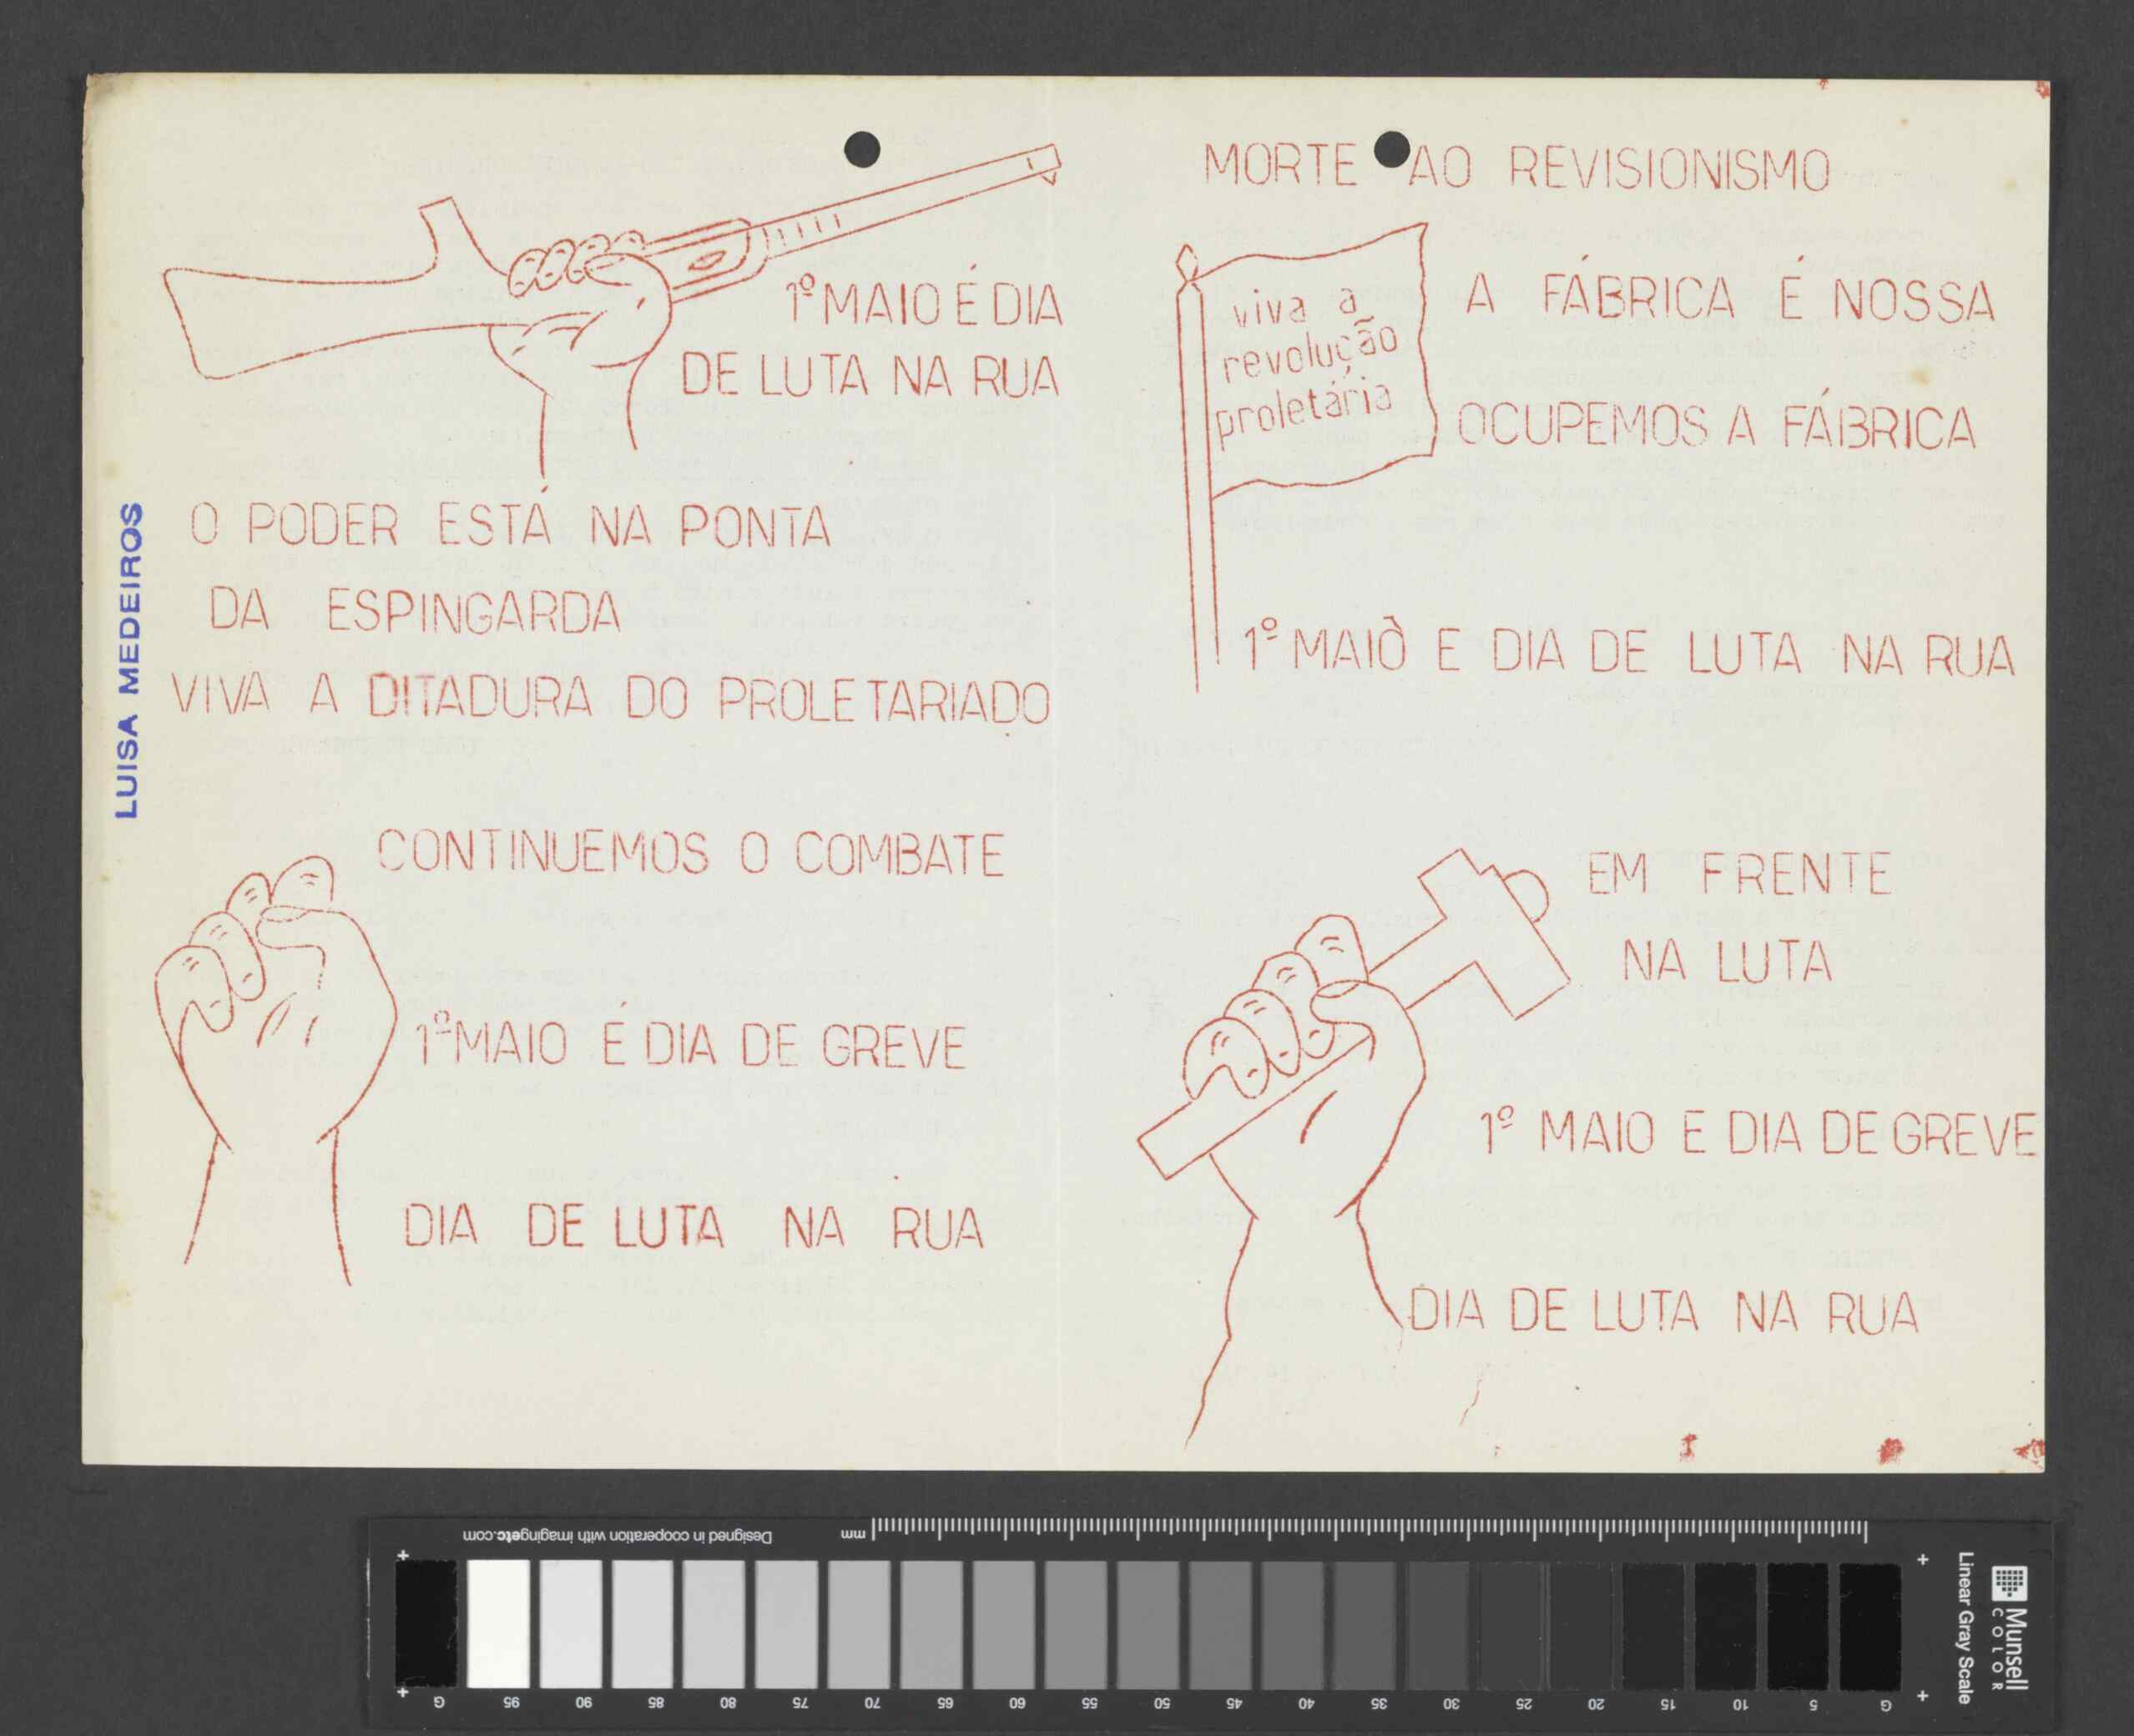 1º MAIO É DIA
DE LUTA NA RUA
O PODER ESTÁ NA PONTA
DA ESPINGARDA
VIVA A DITADURA DO PROLETARIADO
LUISA MEDEIROS
MORTE AO REVISIONISMO
viva a
revolução
proletária
A FÁBRICA É NOSSA
OCUPEMOS A FÁBRICA
1º MAIÒ E DIA DE LUTA NA RUA
CONTINUEMOS O COMBATE
1º MAIO É DIA DE GREVE
DIA DE LUTA NA RUA
EM FRENTE
NA LUTA
1º MAIO E DIA DE GREVE
DIA DE LUTA NA RUA
Designed in cooperation with imagingetc.com
mm
G 95 90 85 80 75 70 65 60 55 50 45 40 35 30 25 20 15 10 5 G
Munsell
COLOR
Linear Gray Scale